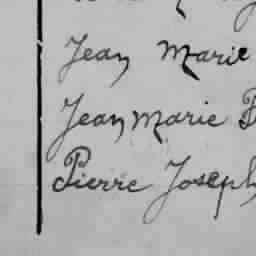 Jean Marie
Jean Marie
Pierre Joseph